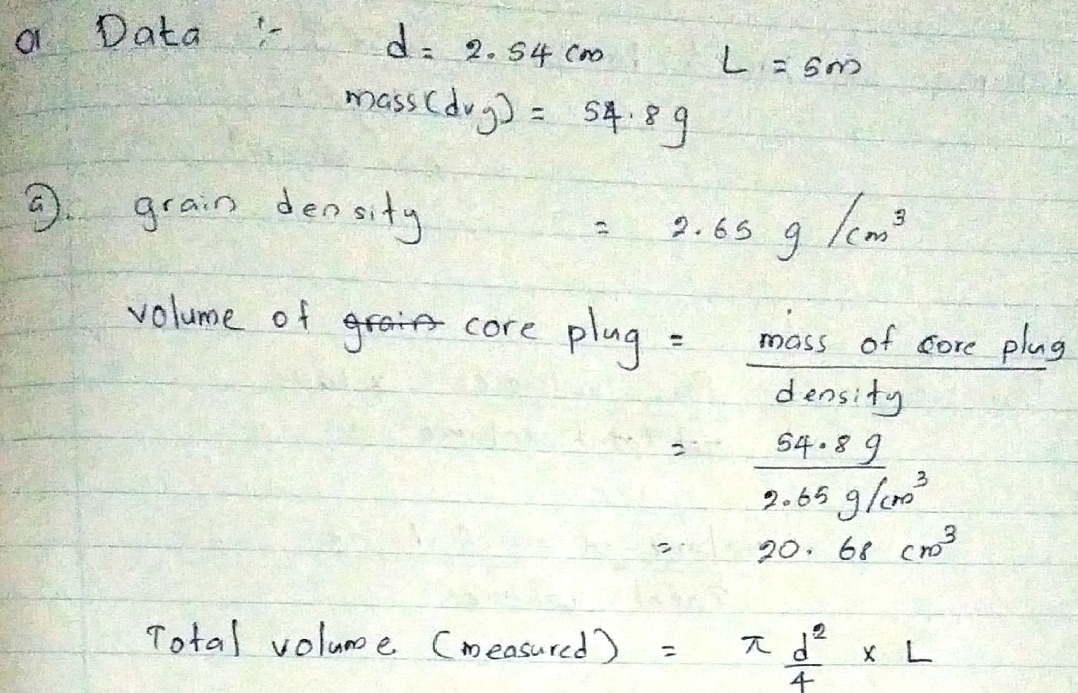 a Data :- d = 2.54 cm L = 5m
mass(dry) = 54.8 g
a). grain density = 2.65 g /cm³
volume of grain core plug = mass of core plug
density
= 54.8 g
2.65 g/cm³
= 20.68 cm³
Total volume (measured) = π d² x L
4